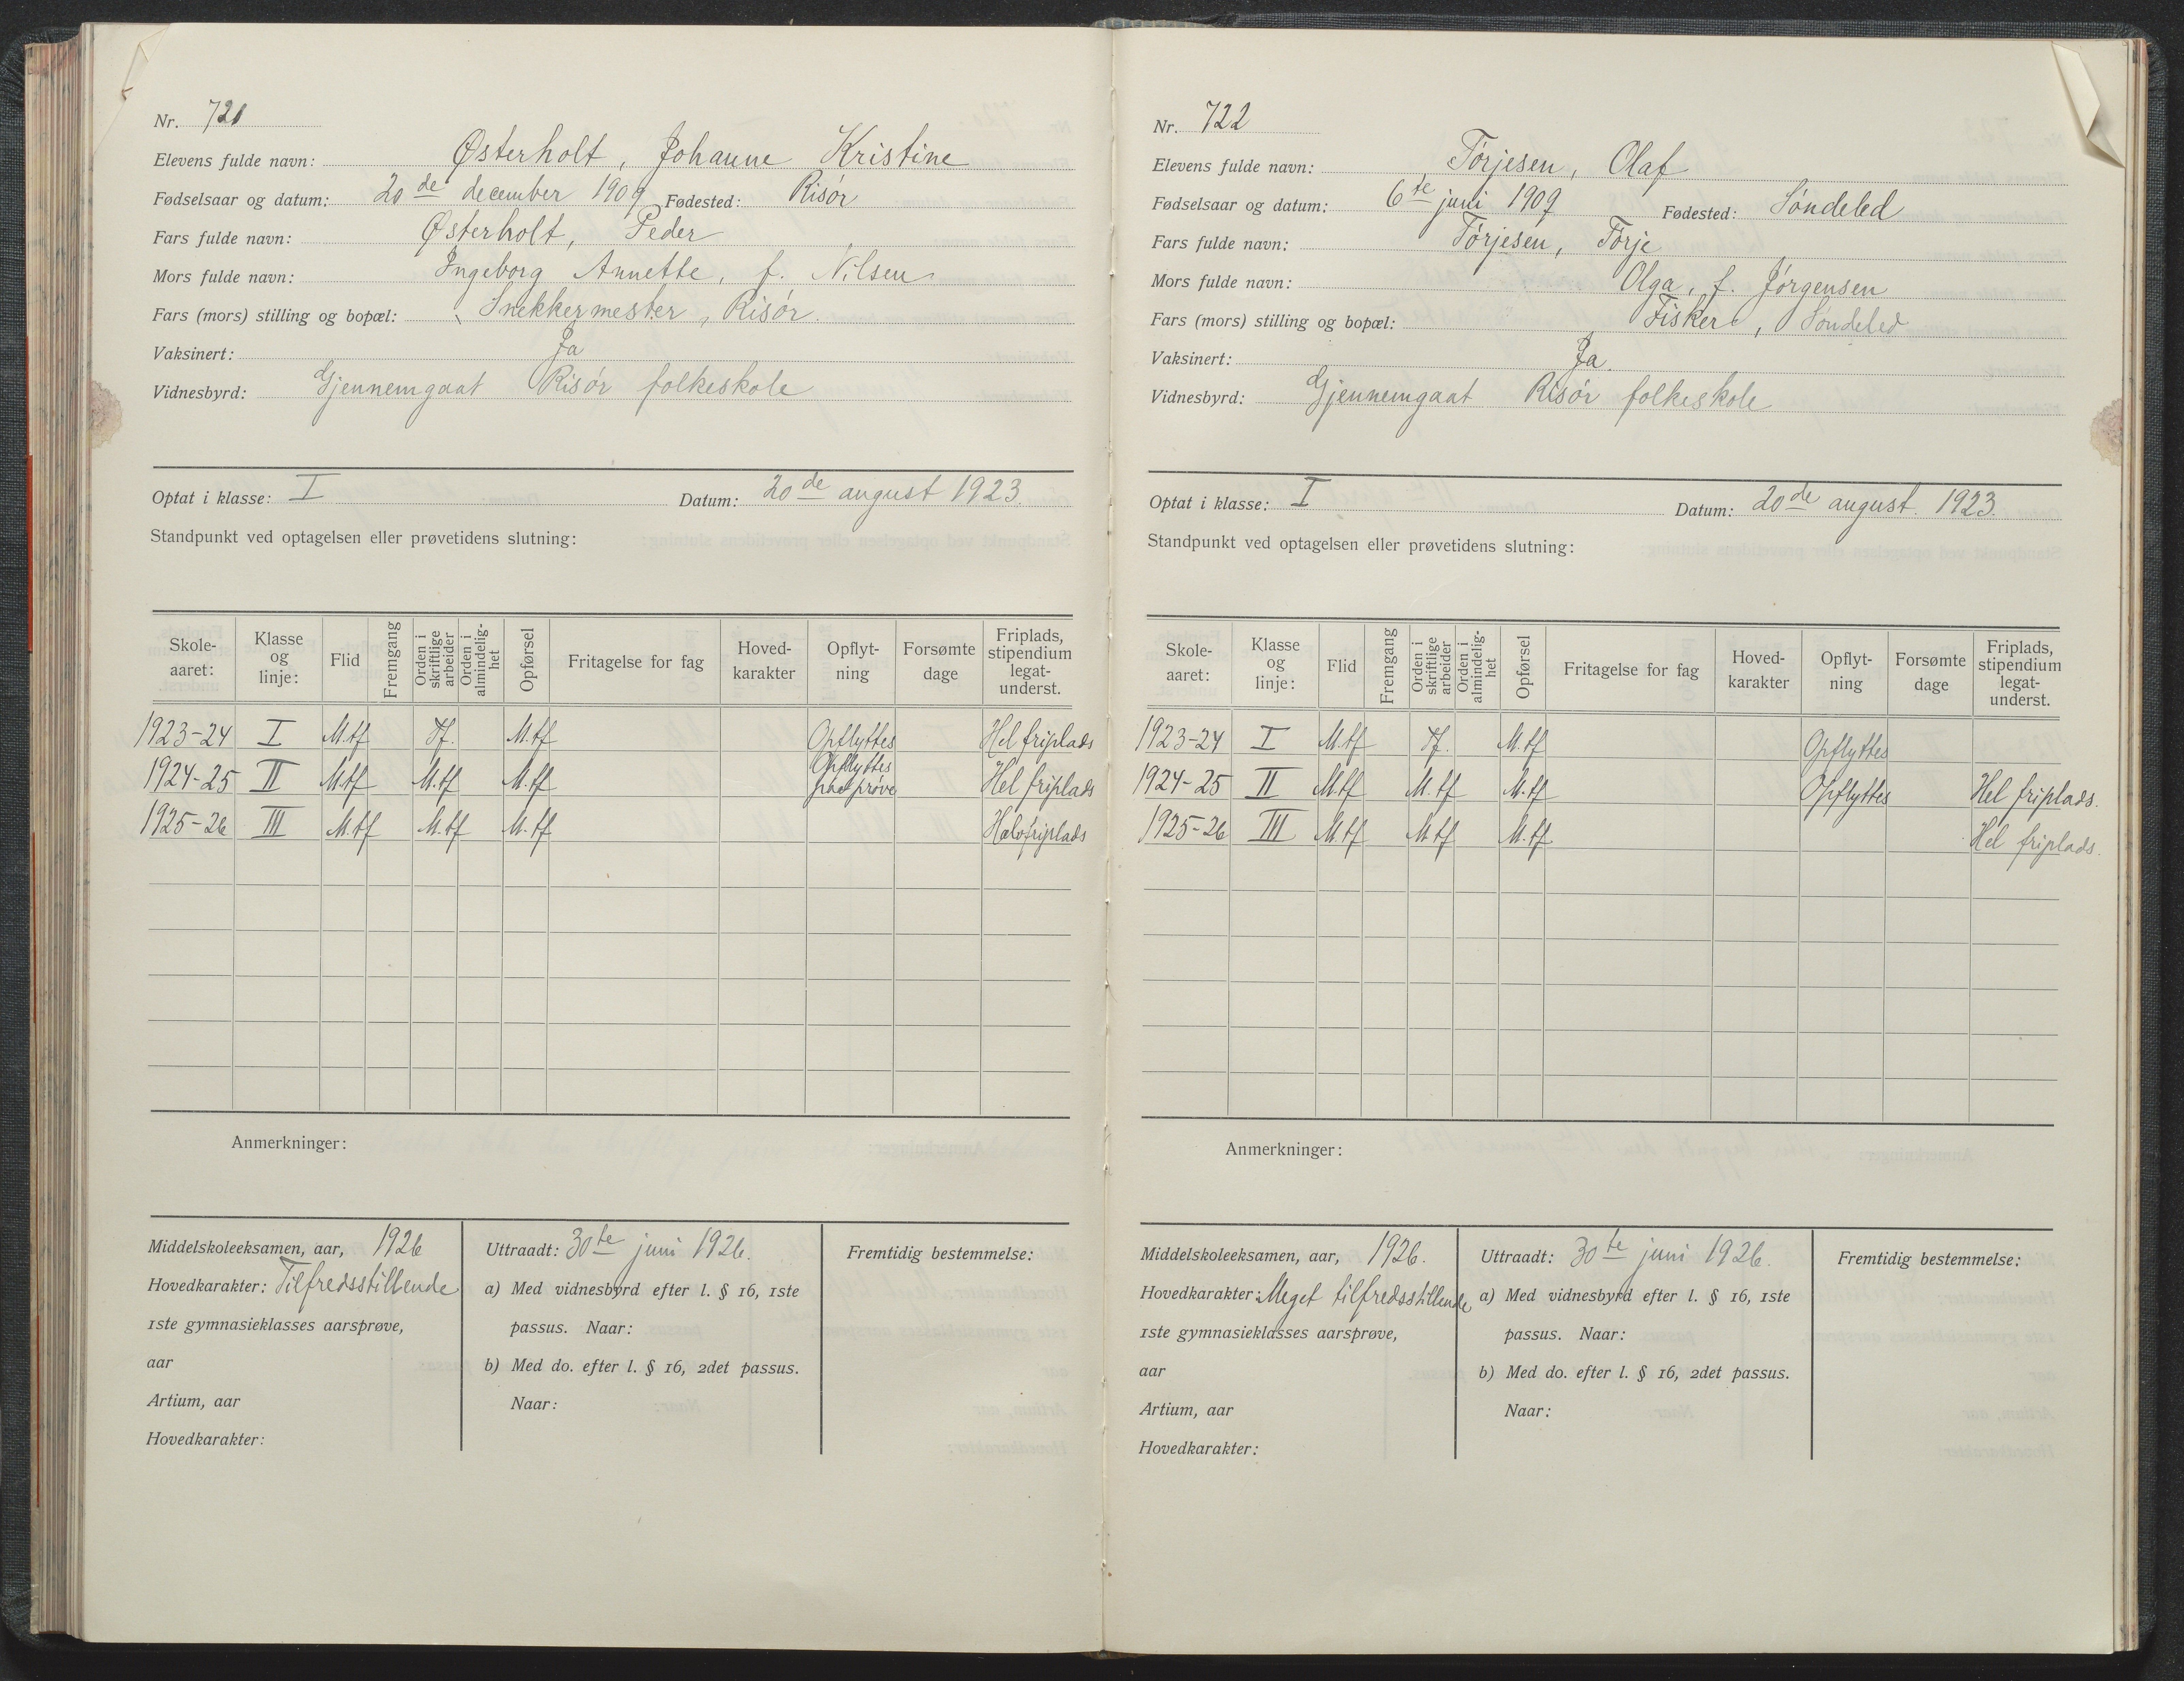 Nr. 721
Elevens fulde navn: Østerholt, Johanne Kristine
Fødselsaar og datum: 20de december 1909 Fødested: Risör
Fars fulde navn: Østerholt, Peder
Mors fulde navn: Ingeborg Annette, f. Nilsen
Fars (mors) stilling og bopæl: Snekkermester, Risör.
Vaksinert: Ja
Vidnesbyrd: Gjennemgaat Risör folkeskole
Optat i klasse: I Datum: 20de august 1923.
Standpunkt ved optagelsen eller prøvetidens slutning:
Skole-aaret: Klasse og linje: Flid Fremgang Orden i skriftlige arbeider Orden i almindelig-het Opførsel Fritagelse for fag Hoved-karakter Opflyt-ning Forsømte dage Friplads, stipendium legat-underst.
1923-24 I M.tf Tf. M.tf Opflyttes Hel friplads
1924-25 II M.tf M.tf M.tf Opflyttes paa prøve Hel friplads
1925-26 III M.tf M.tf M.tf Halvfriplads
Anmerkninger:
Middelskoleeksamen, aar, 1926
Hovedkarakter: Tilfredsstillende
1ste gymnasieklasses aarsprøve,
aar
Artium, aar
Hovedkarakter:
Uttraadt: 30te juni 1926.
a) Med vidnesbyrd efter l. § 16, 1ste
passus. Naar:
b) Med do. efter l. § 16, 2det passus.
Naar:
Fremtidig bestemmelse:
Nr. 722
Elevens fulde navn: Törjesen, Olaf
Fødselsaar og datum: 6te juni 1909 Fødested: Söndeled
Fars fulde navn: Törjesen, Törje
Mors fulde navn: Olga, f. Jörgensen
Fars (mors) stilling og bopæl: Fisker, Söndeled
Vaksinert: Ja.
Vidnesbyrd: Gjennemgaat Risör folkeskole
Optat i klasse: I Datum: 20de august. 1923.
Standpunkt ved optagelsen eller prøvetidens slutning:
Skole-aaret: Klasse og linje: Flid Fremgang Orden i skriftlige arbeider Orden i almindelig-het Opførsel Fritagelse for fag Hoved-karakter Opflyt-ning Forsømte dage Friplads, stipendium legat-underst.
1923-24 I M.tf Tf. M.tf Opflyttes
1924-25 II M.tf M.tf M.tf Opflyttes Hel friplads.
1925-26 III M.tf M.tf M.tf Hel friplads.
Anmerkninger:
Middelskoleeksamen, aar, 1926.
Hovedkarakter: Meget tilfredsstillende
1ste gymnasieklasses aarsprøve,
aar
Artium, aar
Hovedkarakter:
Uttraadt: 30te juni 1926.
a) Med vidnesbyrd efter l. § 16, 1ste
passus. Naar:
b) Med do. efter l. § 16, 2det passus.
Naar:
Fremtidig bestemmelse: